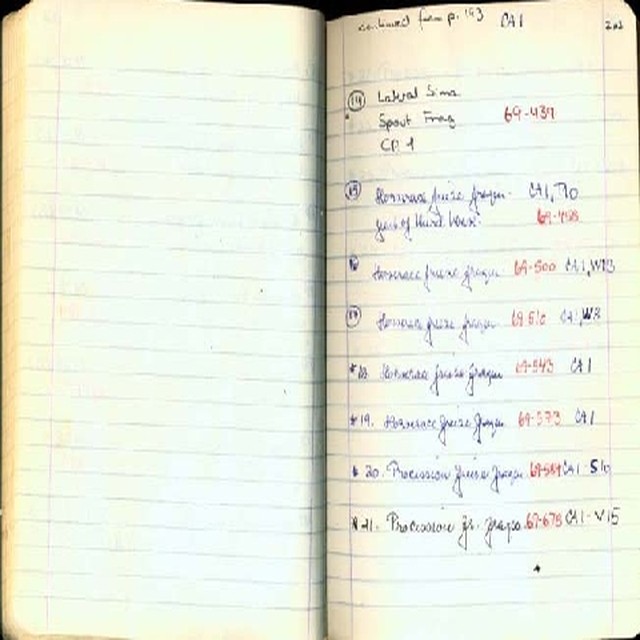 continued from p. 193 CA1 202
14 Lateral Sima
Spout Frag 69-439
CP. 1
15 Horserace frieze fragm. CA1, T10
69-498
16 Horserace frieze fragm 69-500 CA1, W13
17 Horserace frieze fragm 69-510 CA1, W13
* 18. Horserace frieze fragm 69-543 CA1
* 19. Horserace frieze fragm 69-573 CA1
* 20. Procession frieze fragm. CA1-S10
* 21. Procession fr. frags. 69-678 CA1-V15